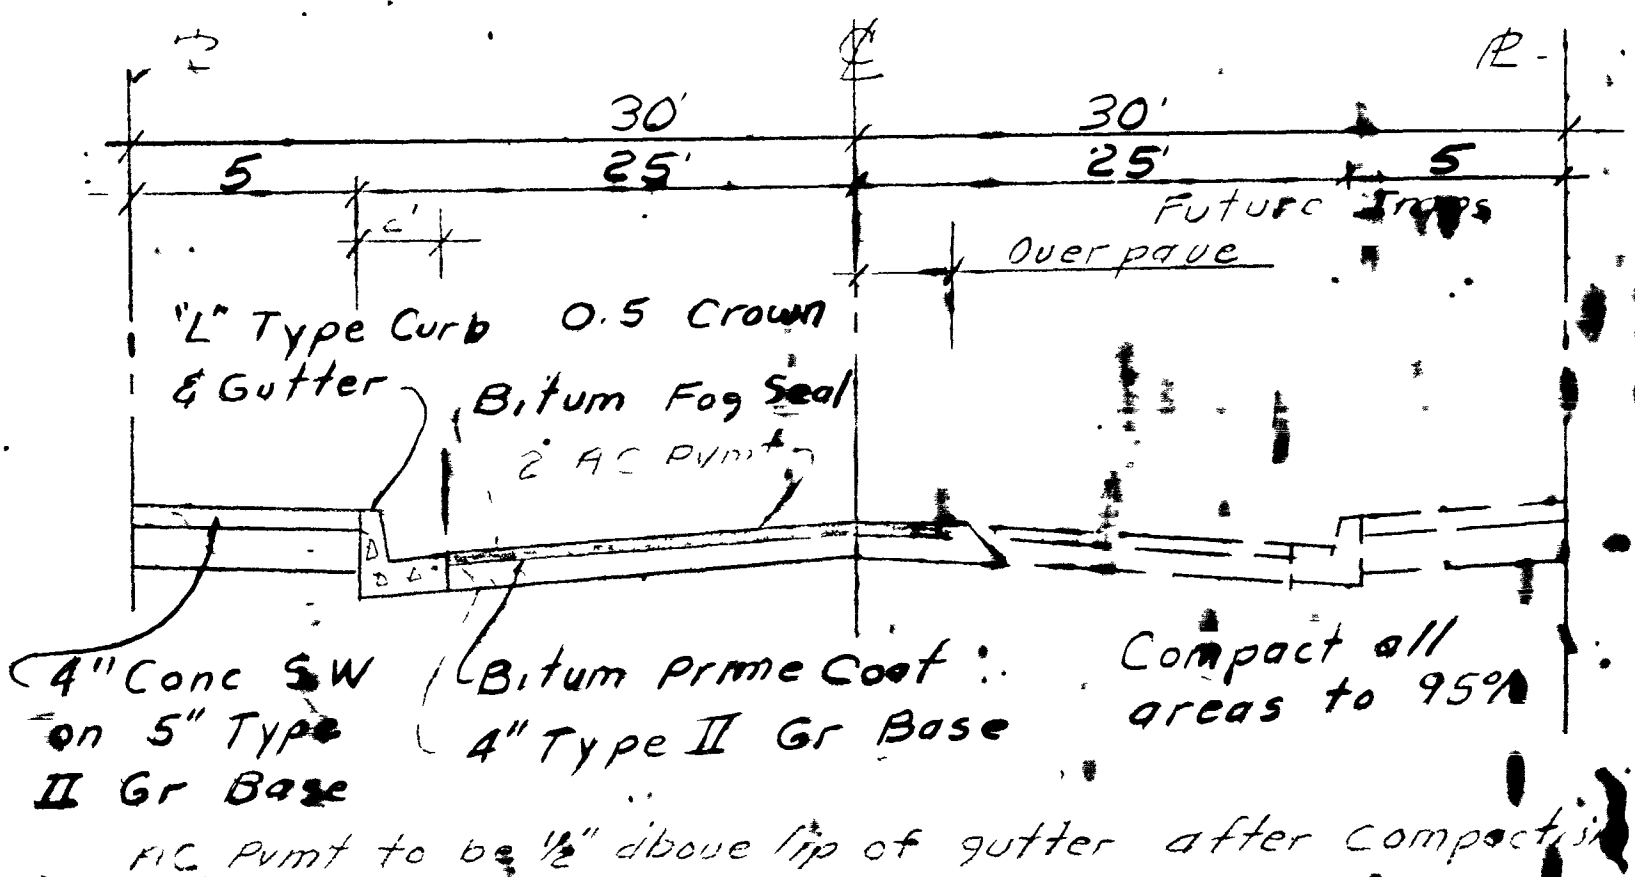 ℄
PL
30'
30'
5
25'
25'
5
Future Imps
Over pave
"L" Type Curb
& Gutter
0.5 Crown
Bitum Fog Seal
2 AC Pvmt
4" Conc SW
on 5" Type
II Gr Base
Bitum Prime Coat
4" Type II Gr Base
Compact all
areas to 95%
AC Pvmt to be ½" above lip of gutter after compaction